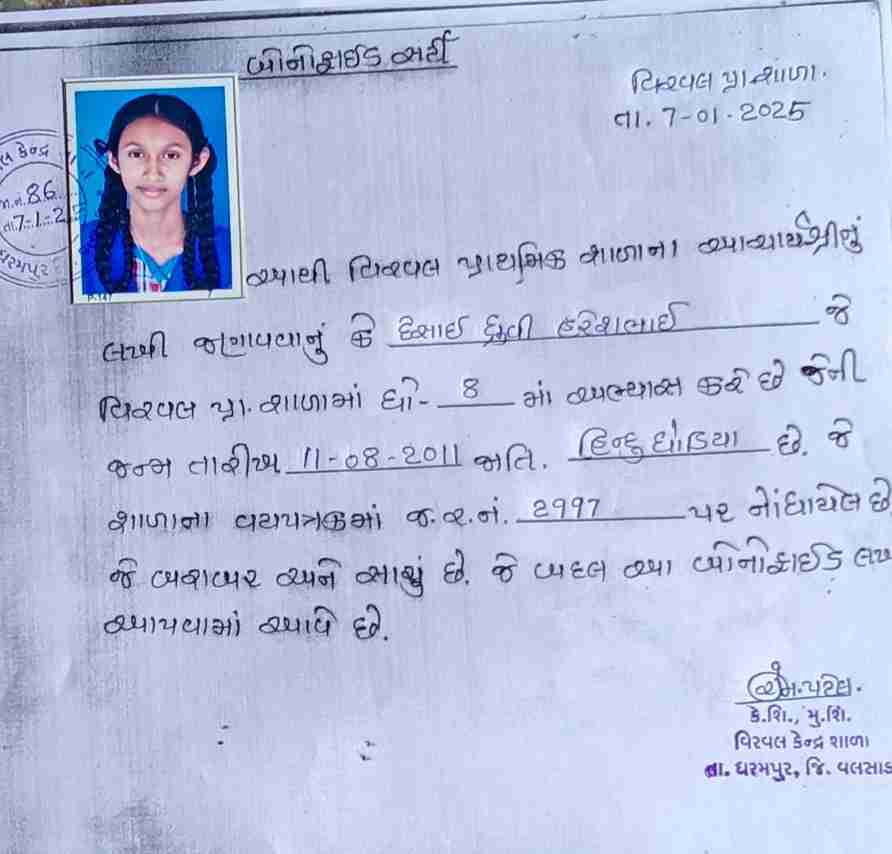 બોનોફાઈડ સર્ટી
વિરવલ પ્રા.શાળા.
તા. 7-01-2025
કેન્દ્ર
86
તા 7-1-2
ધરમપુર
આથી વિરવલ પ્રાથમિક શાળાના આચાર્યશ્રીનું
લખી જણાવવાનું કે દેસાઈ ધ્રુવી હરેશભાઈ જે
વિરવલ પ્રા. શાળામાં ધો- 8 માં અભ્યાસ કરે છે જેની
જન્મ તારીખ 11-08-2011 જાતિ. હિન્દુ ધોડિયા છે. જે
શાળાના વયપત્રકમાં જ.ર.નં. 2997 પર નોંધાયેલ છે
જે બરાબર અને સાચું છે. જે બદલ આ બોનોફાઈડ લખી
આપવામાં આવે છે.
એમ.પટેલ.
કે.શિ., મુ.શિ.
વિરવલ કેન્દ્ર શાળા
તા. ધરમપુર, જિ. વલસાડ